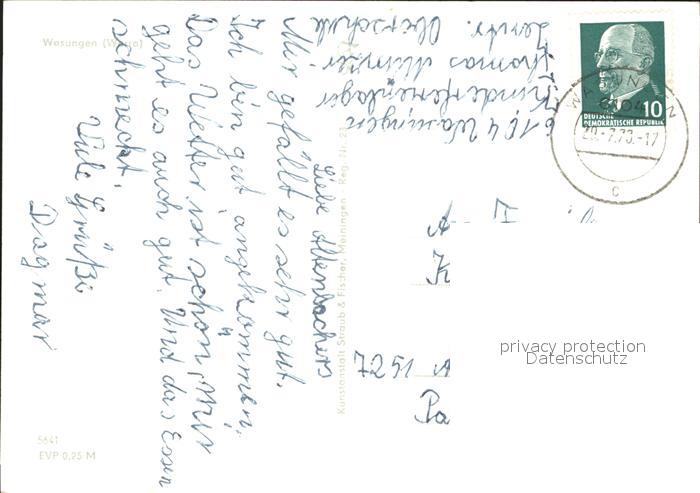 Wasungen (Werra)
Liebe Altenbachers
Mir gefällt es sehr gut.
Ich bin gut angekommen.
Das Wetter ist schön, mir
geht es auch gut. Und das Essen
schmeckt.
Viele Grüße
Dagmar
6104 Wasungen
Kinderferienlager
Thomas Müntzer
Zentr. Oberschule
DEUTSCHE
DEMOKRATISCHE REPUBLIK
10
6104
C
Kunstanstalt Straub & Fischer, Meiningen Reg. Nr.
A
K
7251 A
Pa
privacy protection
Datenschutz
5641
EVP 0,25 M